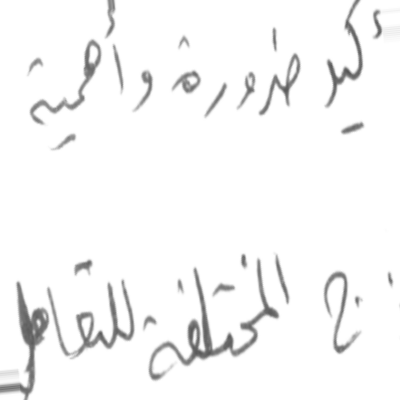 كبير ضرورة وأهمية
ج المختلفة للتعامل